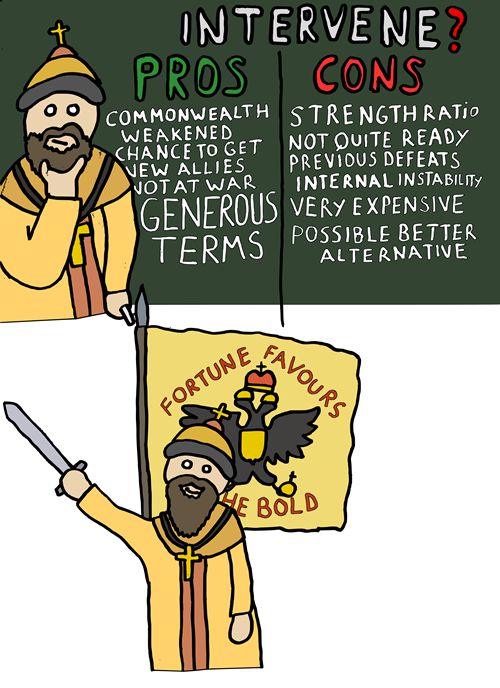 INTERVENE?
PROS
COMMONWEALTH
WEAKENED
CHANCE TO GET
NEW ALLIES
NOT AT WAR
GENEROUS
TERMS
CONS
STRENGTH RATIO
NOT QUITE READY
PREVIOUS DEFEATS
INTERNAL INSTABILITY
VERY EXPENSIVE
POSSIBLE BETTER
ALTERNATIVE
FORTUNE FAVOURS
HE BOLD